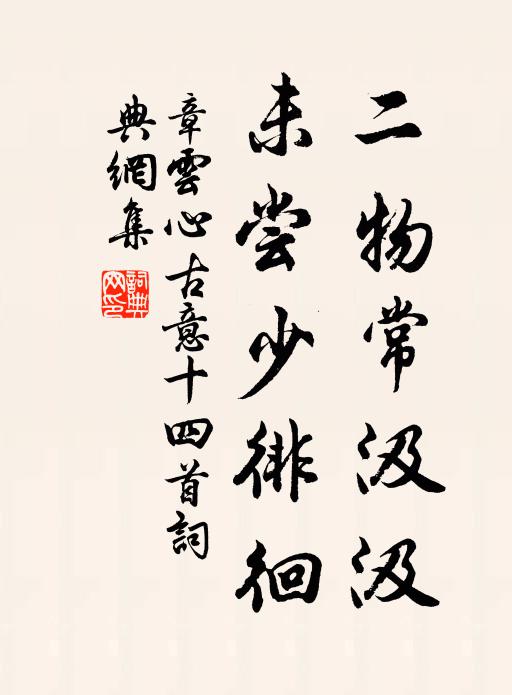 二物常汲汲
未尝少徘徊
章雲心古意十四首詞
典網集
詞典網印